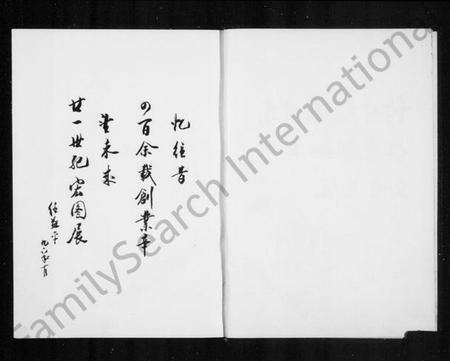 忆往昔
四百余载创业辛
望未来
廿一世纪宏图展
任
九六年一月
FamilySearch International